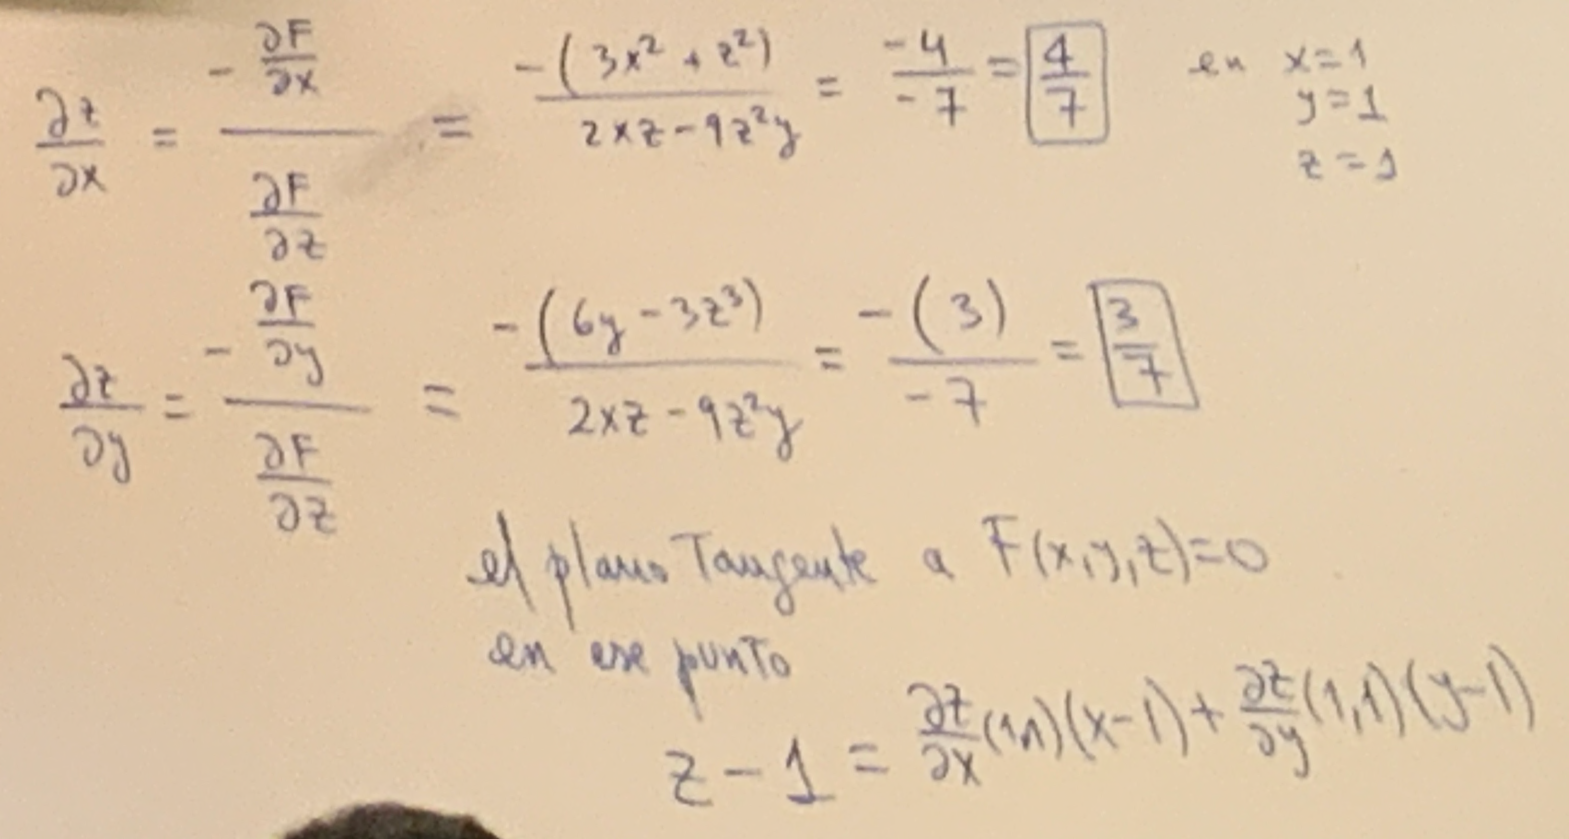 ∂z/∂x = (-∂F/∂x)/(∂F/∂z) = -(3x² + z²)/(2xz - 9z²y) = -4/-7 = 4/7 en x=1
y=1
z=1
∂z/∂y = (-∂F/∂y)/(∂F/∂z) = -(6y - 3z³)/(2xz - 9z²y) = -(3)/-7 = 3/7
el plano Tangente a F(x,y,z)=0
en ese punto
z - 1 = ∂z/∂x (1,1)(x-1) + ∂z/∂y (1,1)(y-1)